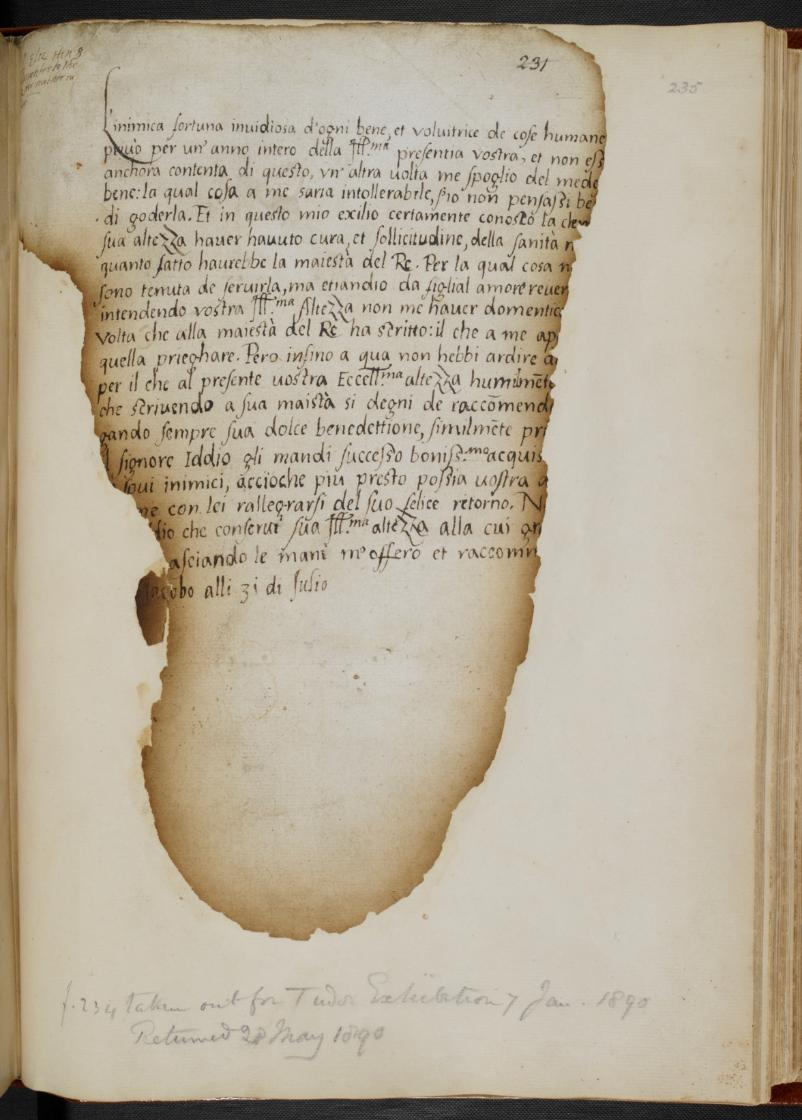 231
235
L'inimica fortuna inuidiosa d'ogni bene, et voluitrice de cose humane
priuò per un' anno intero della Ill.ma presentia vostra, et non ess
anchora contenta di questo, vn' altra uolta me spoglio del mede
bene: la qual cosa a me saria intollerabile, s'io non pensassi be
di goderla. Et in questo mio exilio certamente conosco la cle
sua altezza hauer hauuto cura, et sollicitudine, della sanità
quanto fatto haurebbe la maiestà del Re. Per la qual cosa n
sono tenuta de seruirla, ma etiandio da figlial amore reuer
intendendo vostra Ill.ma Altezza non me hauer domentic
volta che alla maiestà del Re ha scritto: il che a me ap
quella prieghare. Pero infino a qua non hebbi ardire
per il che al presente uostra Eccell.ma altezza humilmēte
che scriuendo a sua maistà si degni de raccōmend
gando sempre sua dolce benedettione, similmēte pri
l signore Iddio gli mandi successo boniss.mo acquis
suoi inimici, accioche piu presto possia uostra
me con lei rallegrarsi del suo felice retorno. N
dio che conserui sua Ill.ma altezza alla cui
asciando le mani m'offero et raccomm
Jacobo alli 31 di Julio
f. 234 taken out for Tudor Exhibition 7 Jan. 1890
Returned 28 May 1890